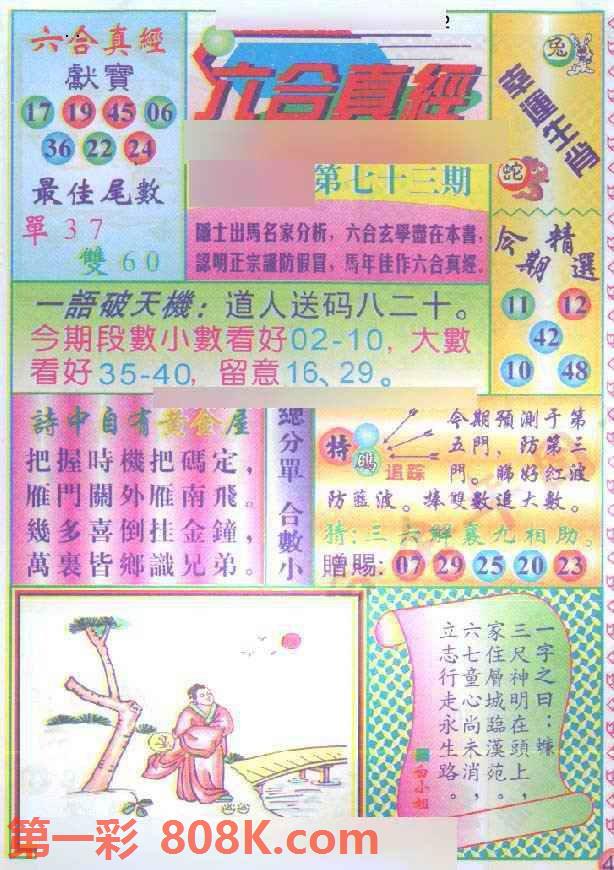 六合真經
獻寶
17 19 45 06
36 22 24
最佳尾數
單37
雙60
六合真經
第七十三期
隱士出馬名家分析，六合玄學盡在本書，
認明正宗謹防假冒，馬年佳作六合真經。
兔
蛇
今期精選
11 12
42
10 48
一語破天機：道人送码八二十。
今期段數小數看好02-10，大數
看好35-40，留意16、29。
詩中自有黃金屋
把握時機把碼定，
雁門關外雁南飛。
幾多喜倒挂金鐘，
萬裏皆鄉識兄弟。
總分單 合數小
特碼
追踪
今期預測于第
五門，防第三
門。睇好紅波
防藍波。捧雙數追大數。
猜：三六解裏九相助。
贈賜：07 29 25 20 23
一字之曰：
三尺神明在頭上，
家住層城臨漢苑。
六七童心尚未消，
立志行走永生路。
白小姐
第一彩 808K.com
4